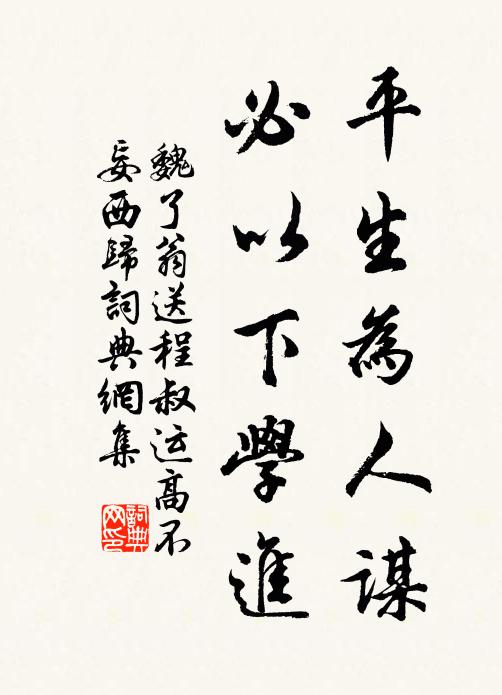 平生為人謀
必以下學進
魏了翁送程叔运高不
妄西歸詞典網集
詞典
网印